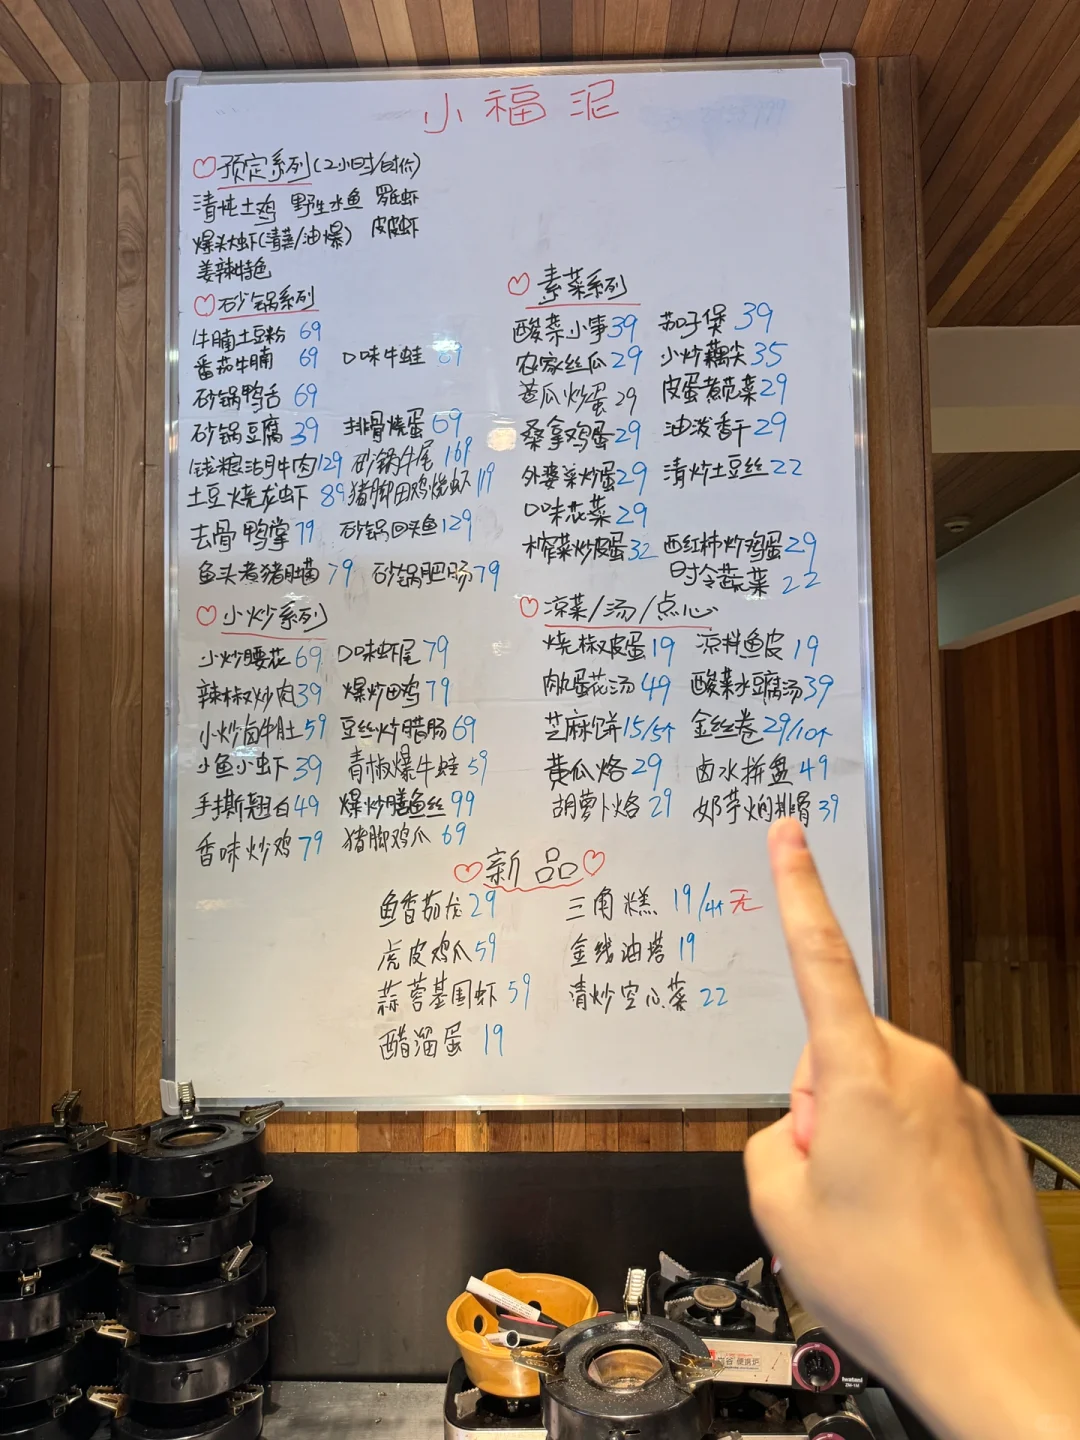 小福泥
♡预定系列(2小时/时价)
清炖土鸡 野生水鱼 罗氏虾
爆头大虾(清蒸/油爆) 皮皮虾
姜辣特色
♡砂锅系列
牛腩土豆粉 69
番茄牛腩 69 口味牛蛙 69
砂锅鸭舌 69
砂锅豆腐 39 排骨烧蛋 69
钱粮湖牛肉 129 砂锅牛尾 169
土豆烧龙虾 89 猪脚田鸡烧虾 119
去骨鸭掌 79 砂锅回头鱼 129
鱼头煮猪肚菌 79 砂锅肥肠 79
♡小炒系列
小炒腰花 69 口味虾尾 79
辣椒炒肉 39 爆炒田鸡 79
小炒卤牛肚 59 豆丝炒腊肠 69
小鱼小虾 39 青椒爆牛蛙 59
手撕翘白 49 爆炒膳鱼丝 99
香味炒鸡 79 猪脚鸡爪 69
♡素菜系列
酸菜小笋 39 茄子煲 39
农家丝瓜 29 小炒藕尖 35
苦瓜炒蛋 29 皮蛋煮苋菜 29
桑拿鸡蛋 29 油泼香干 29
外婆菜炒蛋 29 清炒土豆丝 22
口味花菜 29
榨菜炒皮蛋 32 西红柿炒鸡蛋 29
时令蔬菜 22
♡凉菜/汤/点心
烧椒皮蛋 19 凉拌鱼皮 19
肉丸蛋花汤 49 酸菜水豆腐汤 39
芝麻饼 15/5个 金丝卷 29/10个
黄瓜烙 29 卤水拼盘 49
胡萝卜烙 29 奶芋焖排骨 39
♡新品♡
鱼香茄龙 29 三角糕 19/4个 无
虎皮鸡爪 59 金线油塔 19
蒜蓉基围虾 59 清炒空心菜 22
醋溜蛋 19
iwatani